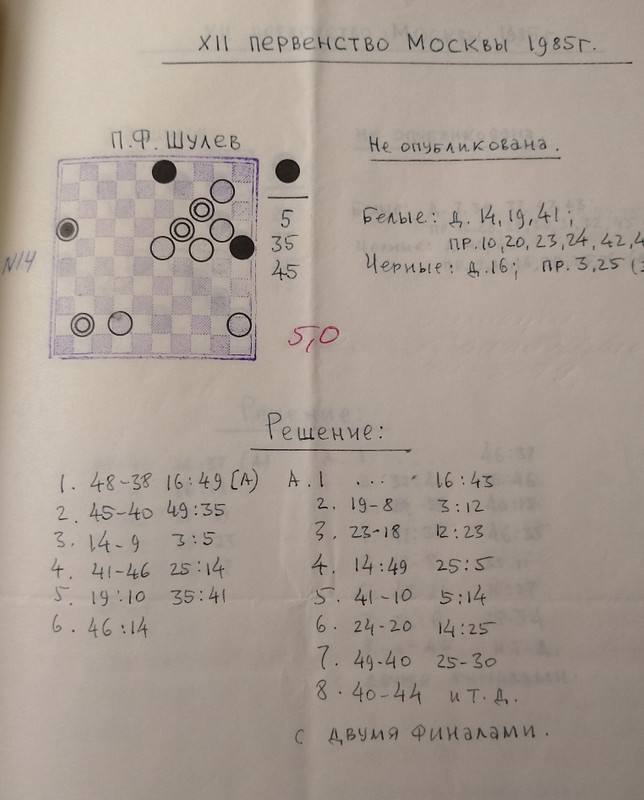 XII первенство Москвы 1985г.
П.Ф. Шулев
Не опубликована.
5
35
45
Белые: д. 14, 19, 41;
пр. 10, 20, 23, 24, 42, 4
Черные: д. 16; пр. 3, 25 (3
N14
5,0
Решение:
1. 48-38 16:49 (А)
2. 45-40 49:35
3. 14-9 3:5
4. 41-46 25:14
5. 19:10 35:41
6. 46:14
А. 1 .... 16:43
2. 19-8 3:12
3. 23-18 12:23
4. 14:49 25:5
5. 41-10 5:14
6. 24-20 14:25
7. 49-40 25-30
8. 40-44 и т.д.
с двумя финалами.